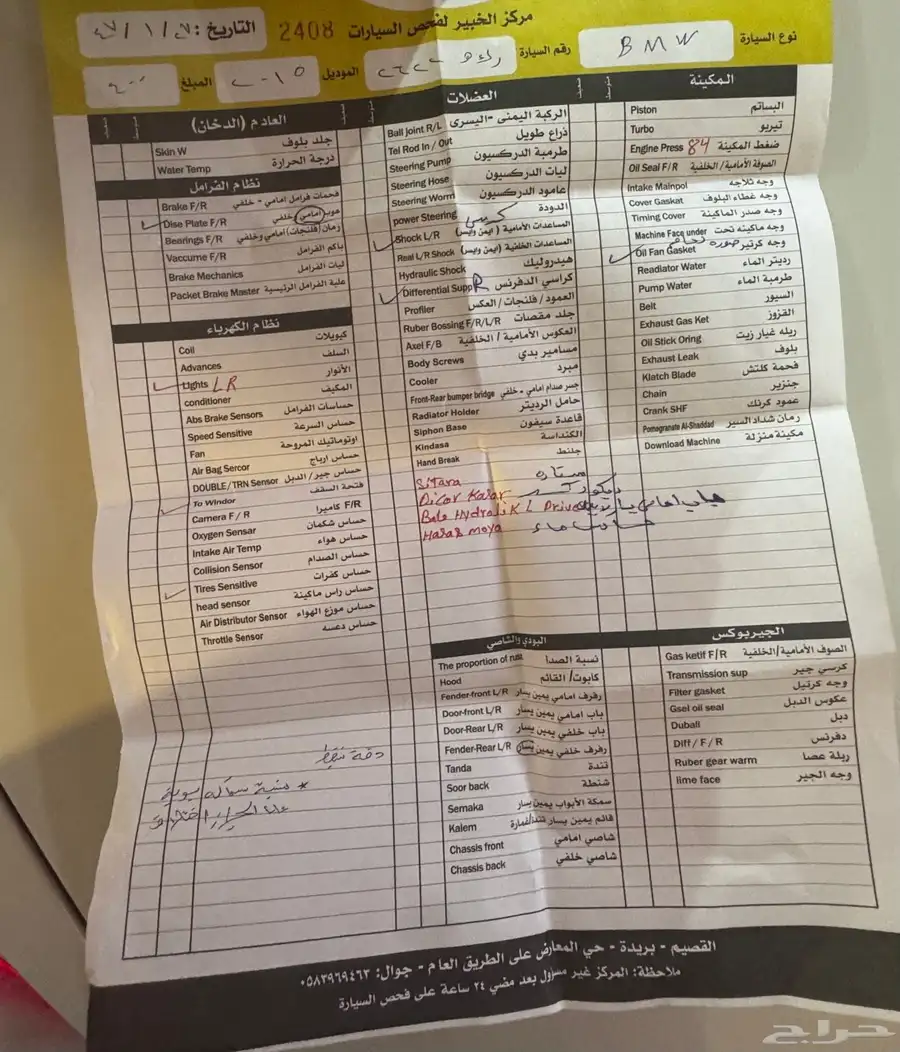 مركز الخبير لفحص السيارات 2408 التاريخ :
نوع السيارة BMW رقم السيارة الموديل ٢٠١٥ المبلغ
المكينة
Piston البساتم
Turbo تيربو
Engine Press 84 ضغط المكينة
Oil Seal F/R الصوفة الأمامية/ الخلفية
Intake Mainpol وجه ثلاجه
Cover Gaskat وجه غطاء البلوف
Timing Cover وجه صدر الماكينة
Machine Face under وجه ماكينه تحت
Oil Fan Gasket وجه كرتير
Readiator Water رديتر الماء
Pump Water طرمبة الماء
Belt السيور
Exhaust Gas Ket القزوز
Oil Stick Oring ربله غيار زيت
Exhaust Leak بلوف
Klatch Blade فحمة كلتش
Chain جنزير
Crank SHF عمود كرنك
Pomagranate Al-Shaddad رمان شداد السير
Download Machine مكينة منزلة
العضلات
Ball Joint R/L الركبة اليمنى -اليسرى
Tel Rod In / Out ذراع طويل
Steering Pump طرمبة الدركسيون
Steering Hose ليات الدركسيون
Steering Worm عامود الدركسيون
power Steering الدودة
Shock L/R المساعدات الأمامية (ايمن وايسر)
Real L/R Shock المساعدات الخلفية (ايمن وايسر)
Hydraulic Shock هيدروليك
Differential Supp R كراسي الدفرنس
Profiler العمود / فلنجات / العكس
Ruber Bossing F/R/L/R جلد مقصات
Axel F/B العكوس الأمامية / الخلفية
Body Screws مسامير بدي
Cooler مبرد
Front-Rear bumper bridge جسر صدام امامي - خلفي
Radiator Holder حامل الرديتر
Siphon Base قاعدة سيفون
Kindasa الكنداسة
Hand Break جلنط
Sitara ستاره
Dicor Kasar ديكور
Bela Hydralik L Prive
Hasas moya حساس ماء
العادم (الدخان)
Skin W جلد بلوف
Water Temp درجة الحرارة
نظام الفرامل
Brake F/R فحمات فرامل امامي - خلفي
Dise Plate F/R هوب امامي خلفي
Bearings F/R رمان (فلنجات) امامي وخلفي
Vaccume F/R باكم الفرامل
Brake Mechanics ليات الفرامل
Packet Brake Master علبة الفرامل الرئيسية
نظام الكهرباء
Coil كبويلات
Advances السلف
Lights LR الأنوار
conditioner المكيف
Abs Brake Sensors حساسات الفرامل
Speed Sensitive حساس السرعة
Fan اوتوماتيك المروحة
Air Bag Sercor حساس ارباج
DOUBLE/TRN Sensor حساس جير/ الدبل
To Windor فتحة السقف
Camera F / R كاميرا F/R
Oxygen Sensar حساس شكمان
Intake Air Temp حساس هواء
Collision Sensor حساس الصدام
Tires Sensitive حساس كفرات
head sensor حساس راس ماكينة
Air Distributor Sensor حساس موزع الهواء
Throttle Sensor حساس دعسه
البودي والشاصي
The proportion of rust نسبة الصدأ
Hood كابوت/ القائم
Fender-front L/R رفرف امامي يمين يسار
Door-front L/R باب امامي يمين يسار
Door-Rear L/R باب خلفي يمين يسار
Fender-Rear L/R رفرف خلفي يمين يسار
Tanda تندة
Soor back شنطة
Semaka سمكة الأبواب يمين يسار
Kaiem قائم يمين يسار تندة/غمارة
Chassis front شاصي امامي
Chassis back شاصي خلفي
الجيربوكس
Gas ketif F/R الصوف الأمامية/الخلفية
Transmission sup كرسي جير
Filter gasket وجه كرتيل
Gsel oil seal عكوس الدبل
Duball دبل
Diff / F / R دفرنس
Ruber gear warm ربلة عصا
lime face وجه الجير
القصيم - بريدة - حي المعارض على الطريق العام - جوال: ٠٥٨٣٩٦٩٤٦٣
ملاحظة: المركز غير مسؤول بعد مضي ٢٤ ساعة على فحص السيارة
حراج